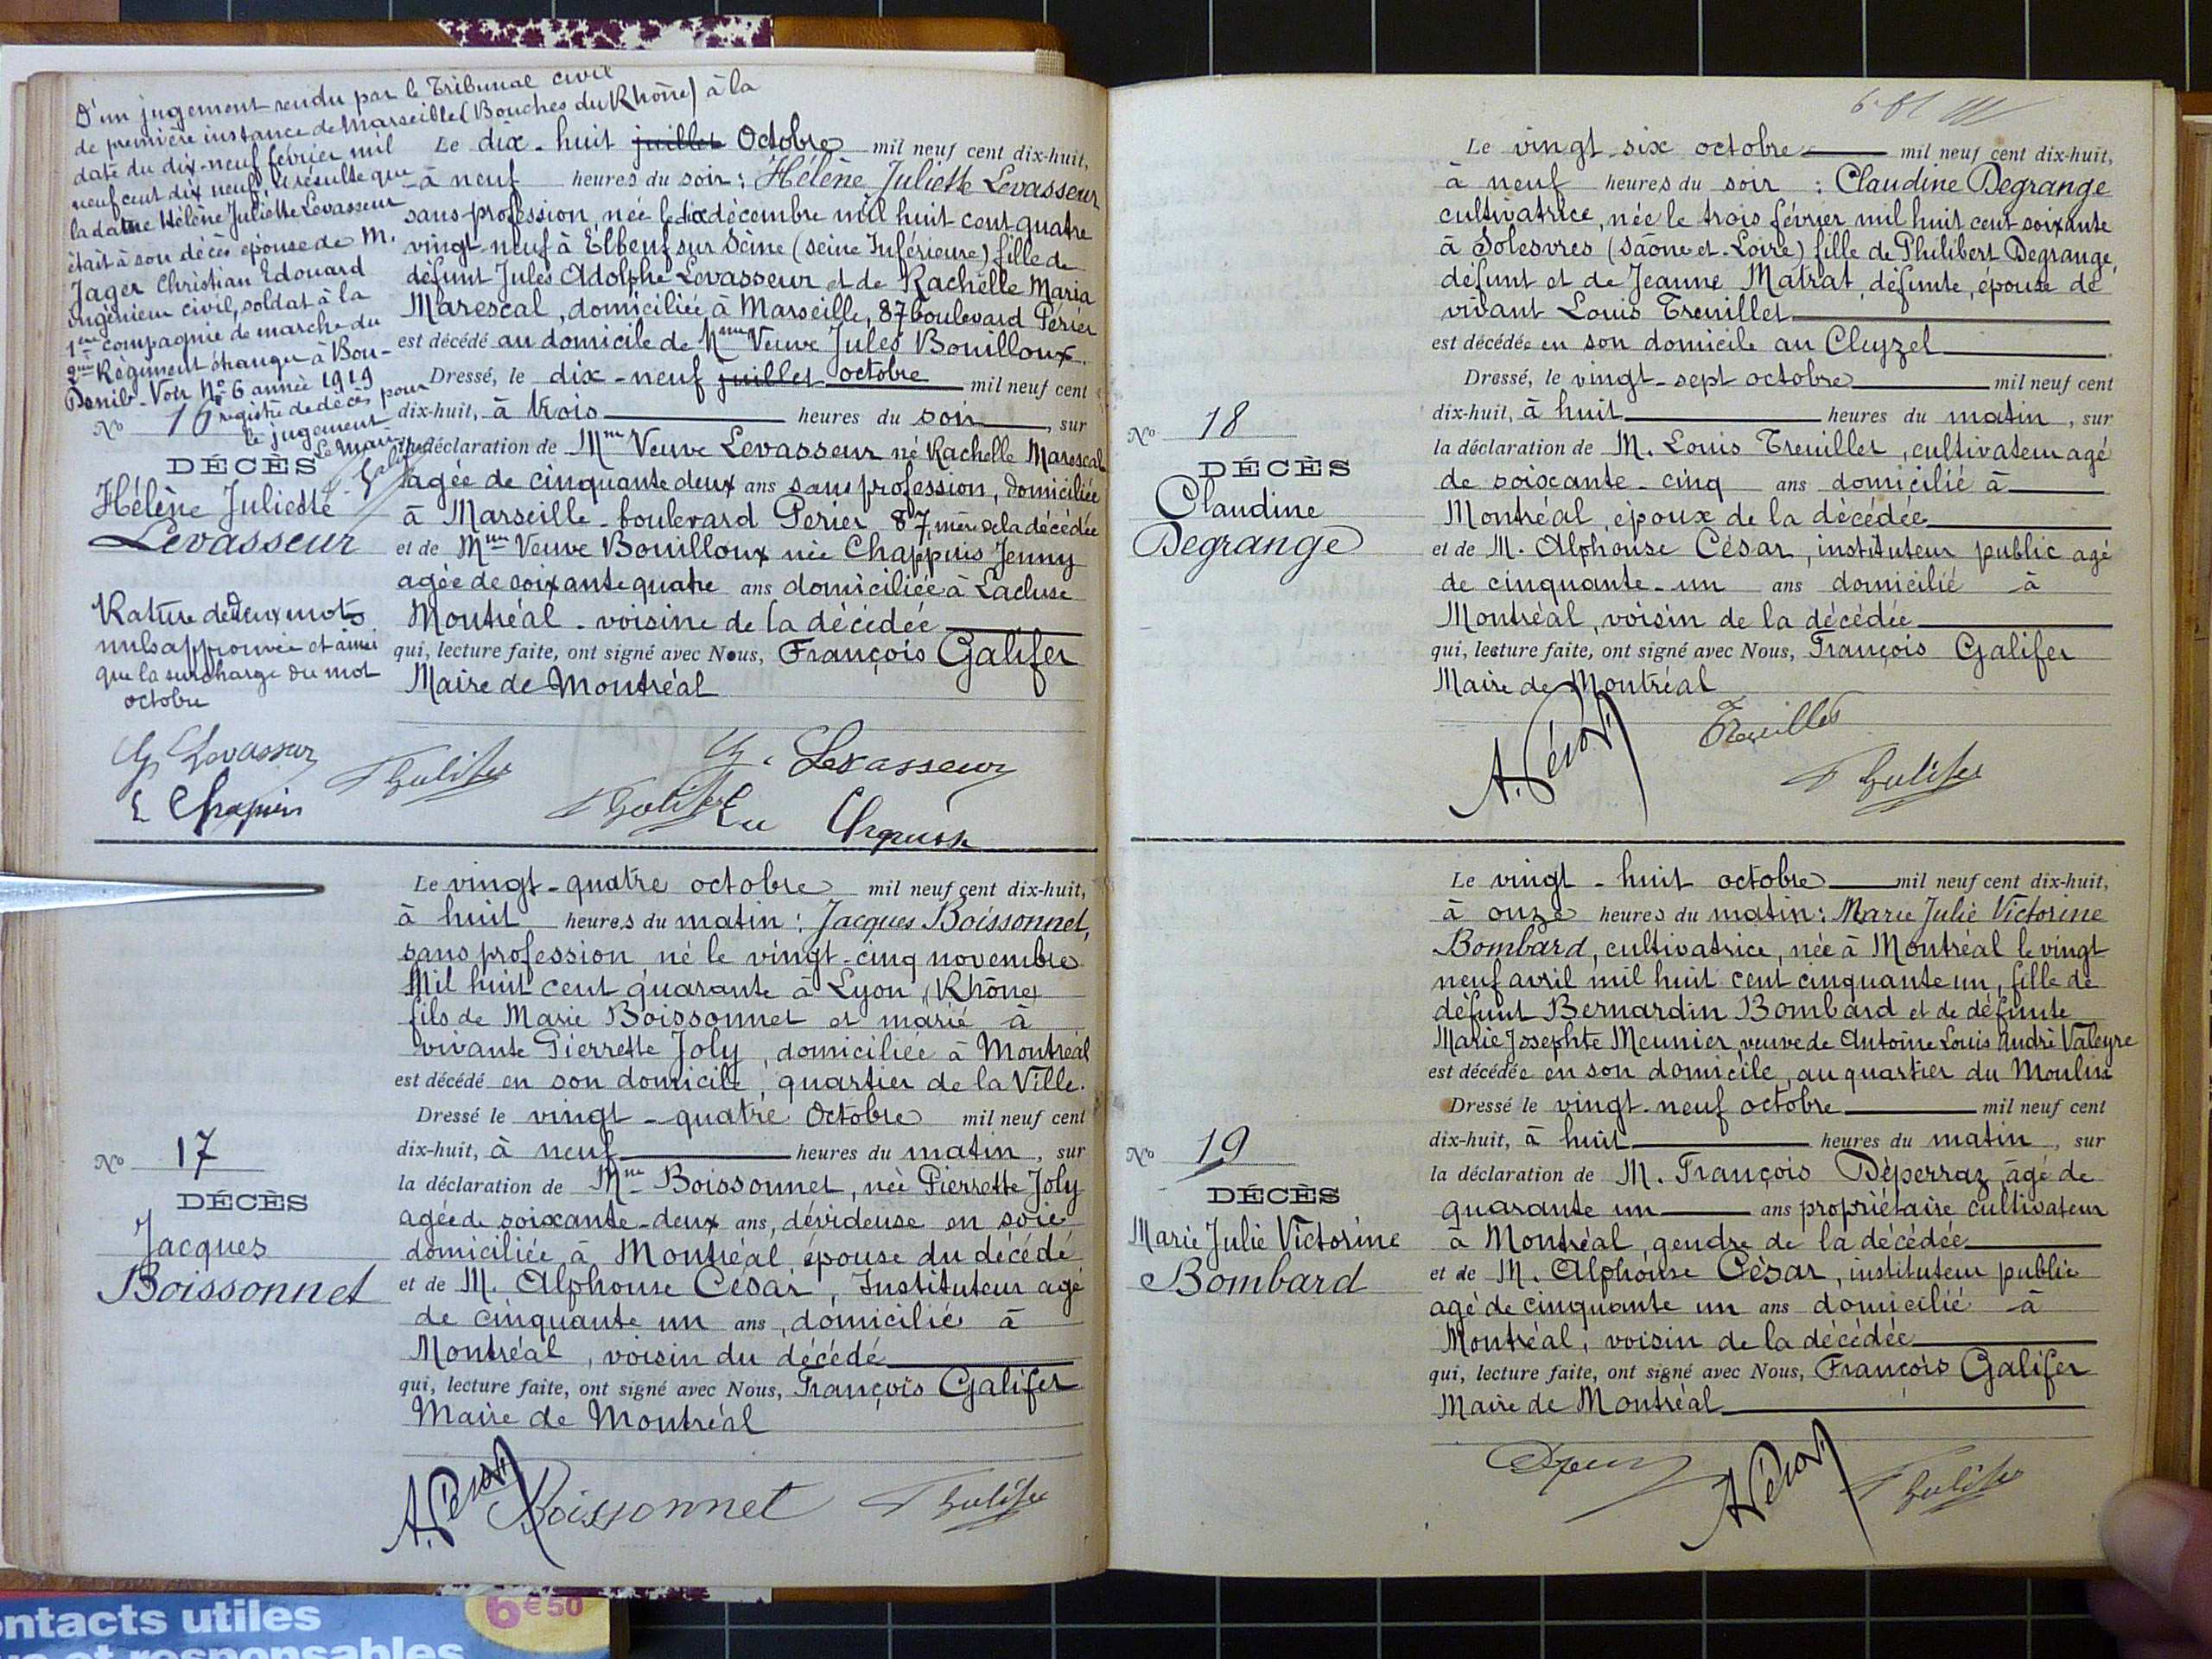 D'un jugement rendu par le Tribunal civil
de première instance de Marseille (Bouches du Rhône) à la
date du dix-neuf février mil
neuf cent dix neuf, il résulte que
la dame Hélène Juliette Levasseur
était à son décès épouse de M.
Jager Christian Edouard
ingénieur civil, soldat à la
1ère compagnie de marche du
2me Régiment étranger à Bou-
Denib - Voir No 6 année 1919
registre de décès pour
le jugement
Le Maire
Galifer
No 16
DÉCÈS
Hélène Juliette
Levasseur
Rature de deux mots
nuls approuvée et ainsi
que la surcharge du mot
octobre
Levasseur
Galifer
Le dix-huit juillet Octobre mil neuf cent dix-huit,
à neuf heures du soir : Hélène Juliette Levasseur
sans profession, née le dix décembre mil huit cent quatre
vingt-neuf à Elbeuf sur Seine (Seine Inférieure) fille de
défunt Jules Adolphe Levasseur et de Rachelle Maria
Marescal, domiciliée à Marseille, 87 boulevard Périer
est décédé au domicile de Mme Veuve Jules Bouilloux.
Dressé, le dix-neuf juillet octobre mil neuf cent
dix-huit, à trois heures du soir, sur
la déclaration de Mme Veuve Levasseur né Rachelle Marescal
agée de cinquante deux ans sans profession, domiciliée
à Marseille - boulevard Perier 87, mère de la décédée
et de Mme Veuve Bouilloux née Chappuis Jenny
agée de soixante quatre ans domiciliée à Lacluse
Montréal - voisine de la décédée
qui, lecture faite, ont signé avec Nous, François Galifer
Maire de Montréal
Levasseur
Galifer
No 17
DÉCÈS
Jacques
Boissonnet
Le vingt-quatre octobre mil neuf cent dix-huit,
à huit heures du matin : Jacques Boissonnet,
sans profession né le vingt-cinq novembre
Mil huit cent quarante à Lyon (Rhône)
fils de Marie Boissonnet et marié à
vivante Pierrette Joly, domiciliée à Montréal
est décédé en son domicile, quartier de la Ville.
Dressé le vingt-quatre Octobre mil neuf cent
dix-huit, à neuf heures du matin, sur
la déclaration de Mme Boissonnet, née Pierrette Joly
agée de soixante-deux ans, dévideuse en soie
domiciliée à Montréal, épouse du décédé
et de M. Alphonse César, Instituteur agé
de cinquante un ans, domicilié à
Montréal, voisin du décédé
qui, lecture faite, ont signé avec Nous, François Galifer
Maire de Montréal
A. César Boissonnet Galifer
No 18
DÉCÈS
Claudine
Degrange
Le vingt-six octobre mil neuf cent dix-huit,
à neuf heures du soir : Claudine Degrange
cultivatrice, née le trois février mil huit cent soixante
à Solesvres (Saône et-Loire) fille de Philibert Degrange,
défunt et de Jeanne Matrat, défunte, épouse de
vivant Louis Treuillet
est décédée en son domicile au Cleyzel
Dressé, le vingt-sept octobre mil neuf cent
dix-huit, à huit heures du matin, sur
la déclaration de M. Louis Treuillet, cultivateur agé
de soixante-cinq ans domicilié à
Montréal, époux de la décédée
et de M. Alphonse César, instituteur public agé
de cinquante-un ans domicilié à
Montréal, voisin de la décédée
qui, lecture faite, ont signé avec Nous, François Galifer
Maire de Montréal
A. César Treuillet
Galifer
No 19
DÉCÈS
Marie Julie Victorine
Bombard
Le vingt-huit octobre mil neuf cent dix-huit,
à onze heures du matin : Marie Julie Victorine
Bombard, cultivatrice, née à Montréal le vingt
neuf avril mil huit cent cinquante un, fille de
défunt Bernardin Bombard et de défunte
Marie Josephte Meunier, veuve de Antoine Louis André Valeyre
est décédée en son domicile, au quartier du Moulin
Dressé le vingt-neuf octobre mil neuf cent
dix-huit, à huit heures du matin, sur
la déclaration de M. François Déperraz, agé de
quarante un ans propriétaire cultivateur
à Montréal, gendre de la décédée
et de M. Alphonse César, instituteur public
agé de cinquante un ans domicilié à
Montréal, voisin de la décédée
qui, lecture faite, ont signé avec Nous, François Galifer
Maire de Montréal
A. César Galifer
ontacts utiles
6€50
et responsables